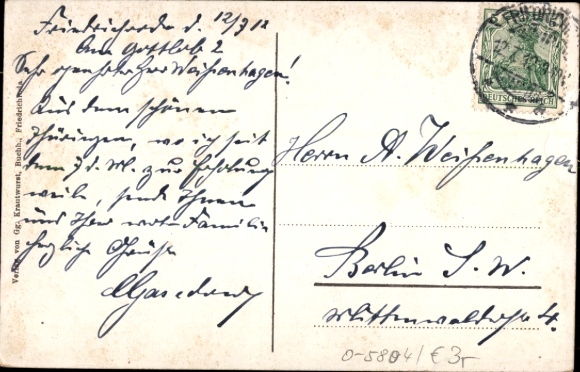 Friedrichroda d. 12/7 12
Am Gottlob 2
Sehr geehrter Herr Weißenhagen!
Aus dem schönen
Thüringen, wo ich seit
dem 7 d. M. zur Erholung
weile, sende Ihnen
und Ihrer werten Familie
herzliche Grüße
Herrn A. Weißenhagen
Berlin S. W.
Mittenwalderstr 4.
DEUTSCHES REICH
Verlag von Gg. Krautwurst, Buchh., Friedrichroda
0-5804/€ 3,-